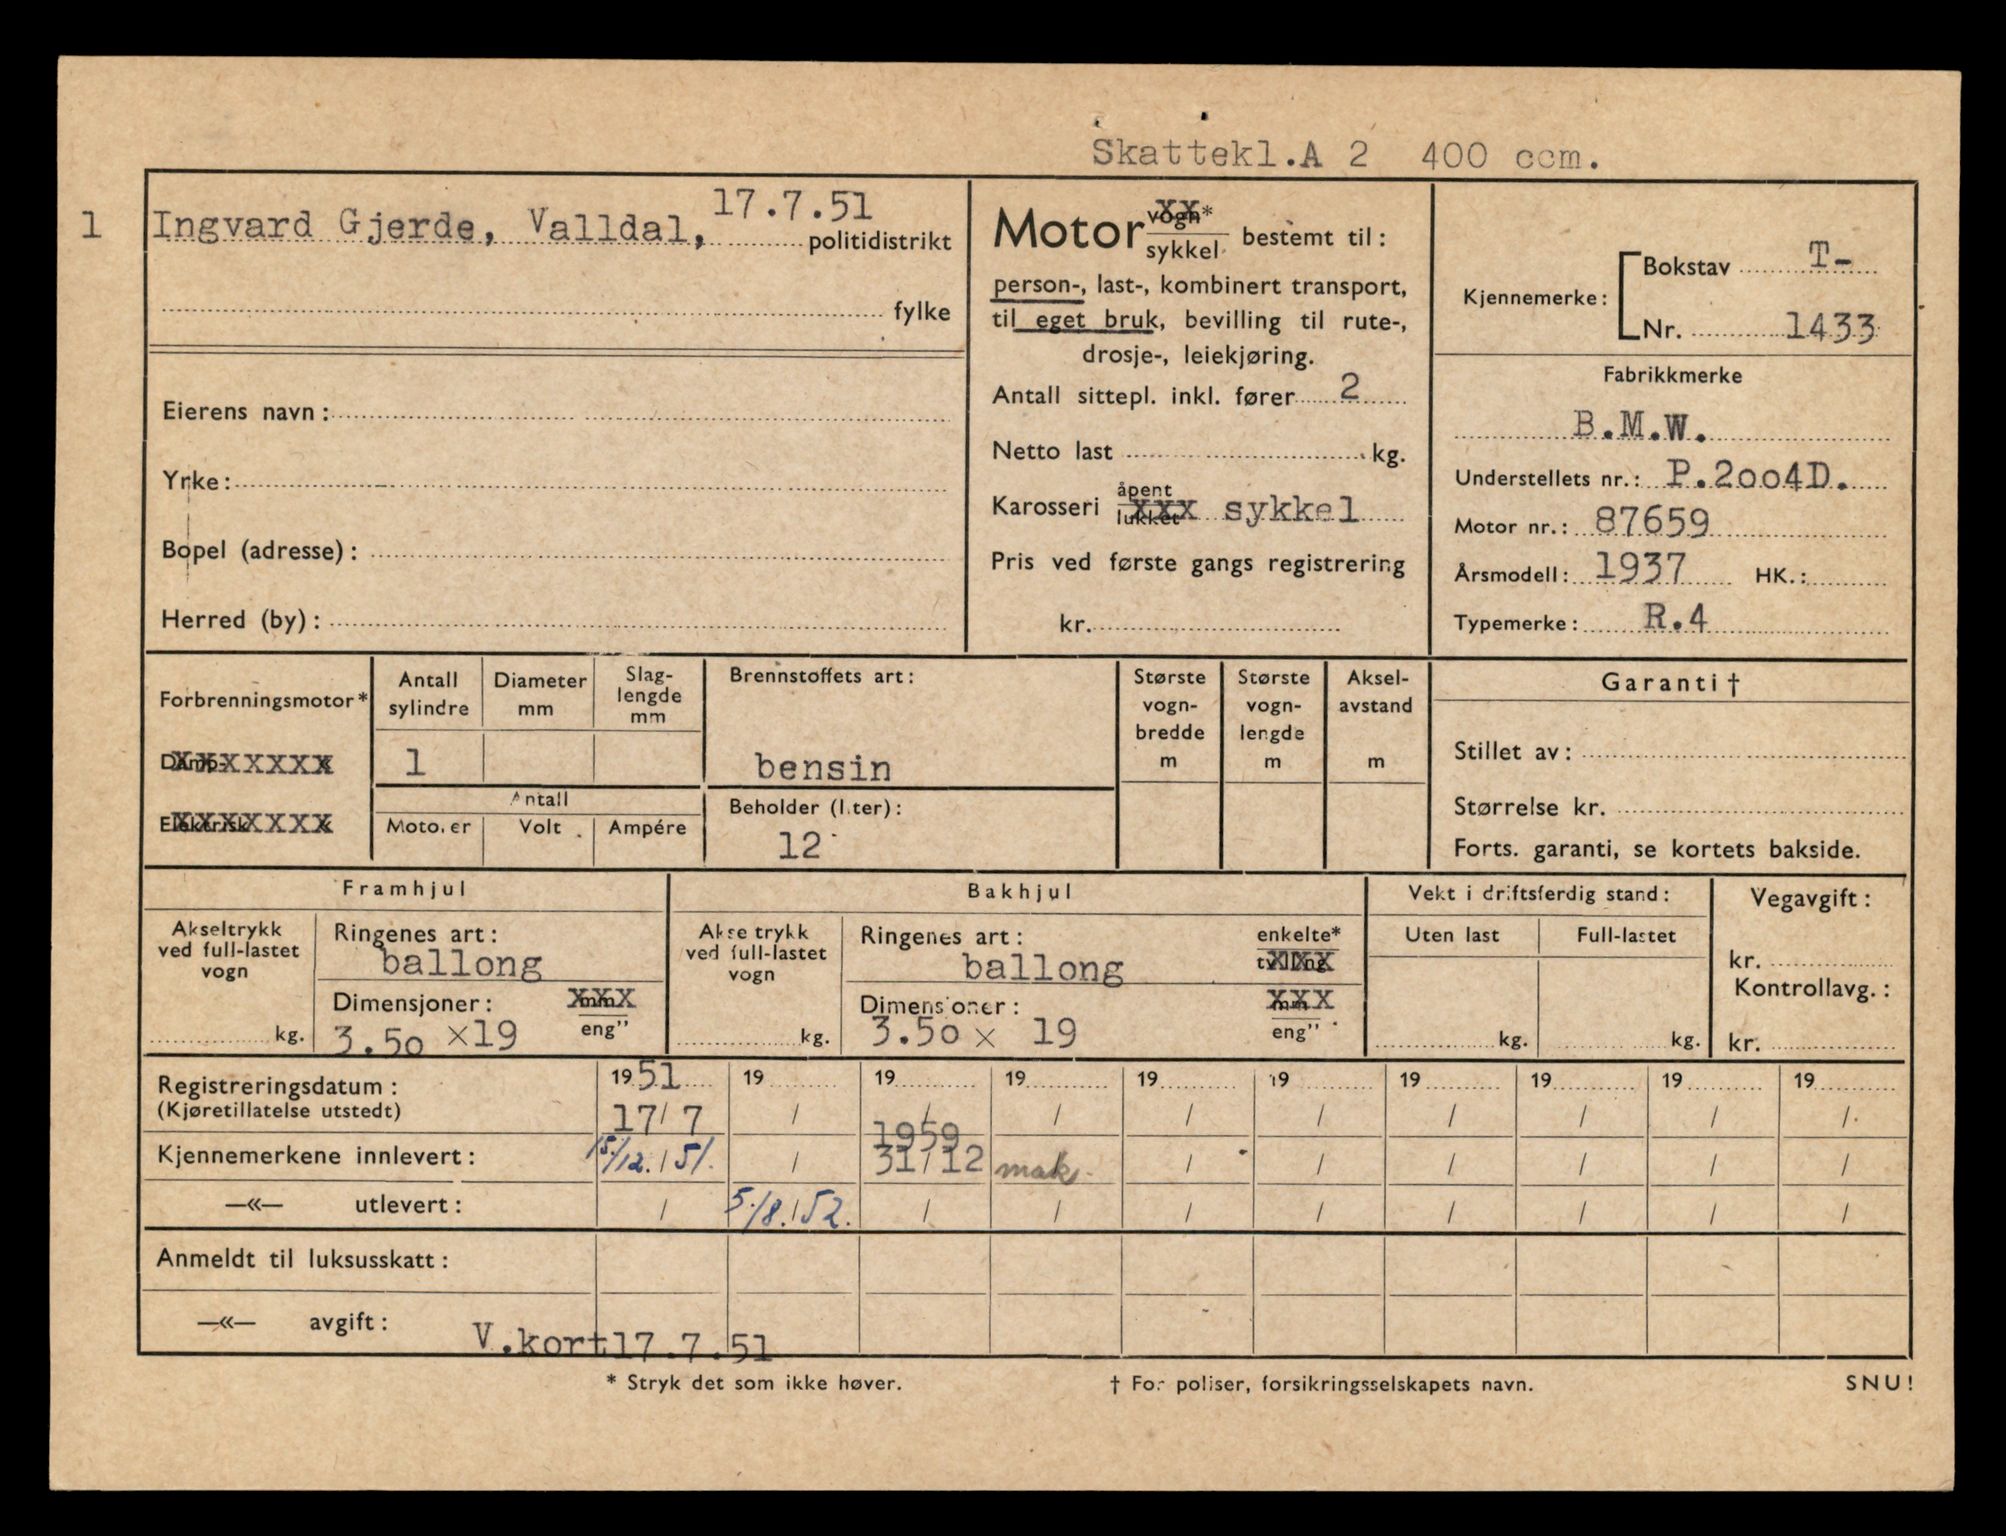 Skattekl.A 2 400 ccm.
1 Ingvard Gjerde, Valldal, 17.7.51 politidistrikt
fylke
Eierens navn:
Yrke:
Bopel (adresse):
Herred (by):
Motor vogn* sykkel bestemt til:
person-, last-, kombinert transport,
til eget bruk, bevilling til rute-,
drosje-, leiekjøring.
Antall sittepl. inkl. fører 2
Netto last kg.
Karosseri åpent lukket xxx sykkel
Pris ved første gangs registrering
kr.
Kjennemerke: Bokstav T-
Nr. 1433
Fabrikkmerke
B.M.W.
Understellets nr.: P.2004D.
Motor nr.: 87659
Årsmodell: 1937 HK.:
Typemerke: R.4
Forbrenningsmotor*
Damp- xxxxxxx
Elektrisk xxxxxxx
Antall sylindre
1
Diameter mm
Slag-lengde mm
Antall
Motorer Volt Ampére
Brennstoffets art:
bensin
Beholder (liter):
12
Største vogn-bredde m
Største vogn-lengde m
Aksel-avstand m
Garanti †
Stillet av:
Størrelse kr.
Forts. garanti, se kortets bakside.
Framhjul
Akseltrykk ved full-lastet vogn
kg.
Ringenes art:
ballong
Dimensjoner: xxx mm eng"
3.50 x19
Bakhjul
Akseltrykk ved full-lastet vogn
kg.
Ringenes art: enkelte* tvilling xxx
ballong
Dimensjoner: xxx mm eng"
3.50 x 19
Vekt i driftsferdig stand:
Uten last Full-lastet
kg. kg.
Vegavgift:
kr.
Kontrollavg.:
kr.
Registreringsdatum: 1951 19 19 19 19 19 19 19 19 19
(Kjøretillatelse utstedt) 17/7 / / / / / / / / /
1959
Kjennemerkene innlevert: 15/12. / 51. / 31/12 mak. / / / / / /
—«— utlevert: / 5./8./52. / / / / / / / /
Anmeldt til luksusskatt:
—«— avgift:
V.kort17.7.51
* Stryk det som ikke høver.
† For poliser, forsikringsselskapets navn.
SNU!